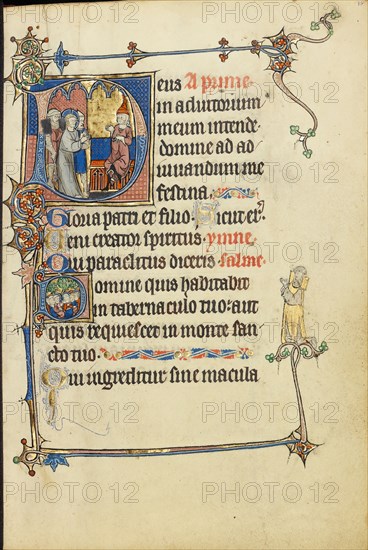 eus A prime
in adiutorium
meum intende
domine ad ad
iuuandum me
festina
Gloria patri et filio Sicut er
Ueni creator spiritus ymne
Qui paraclitus diceris salme
Domine quis habitabit
in tabernaculo tuo aut
quis requiescet in monte san
cto tuo
Qui ingreditur sine macula
PHOTO 12